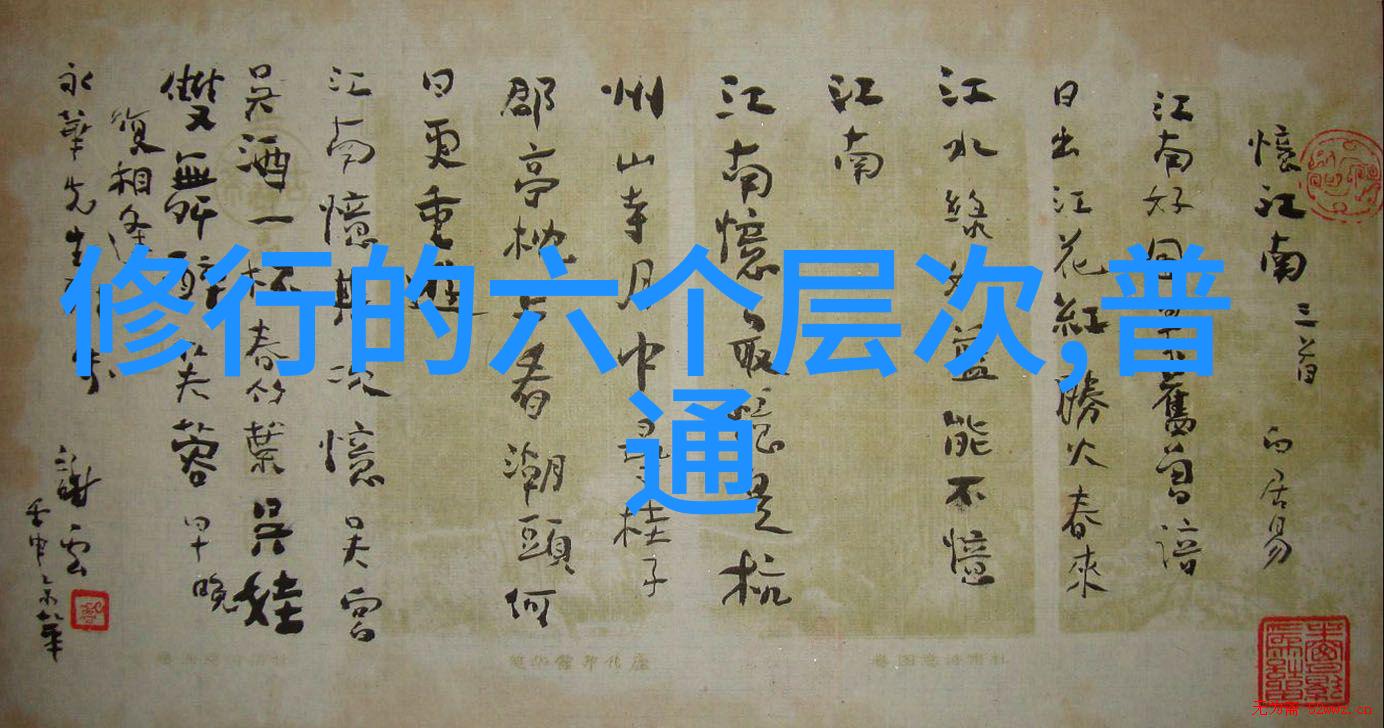 修行的六个层次,普
通
憶江南 三首 白居易
江南好舊曾諳
日出江花紅勝火春來
江水綠如藍能不憶
江南
江南憶最憶是杭
州山寺月中尋桂子
郡亭枕上看潮頭何
日更重遊
江南憶其次憶吳宮
吳酒一杯春竹葉吳娃
雙舞醉芙蓉早晚
復相逢
永華先生
謝雲
无为斋 52wwz.cn